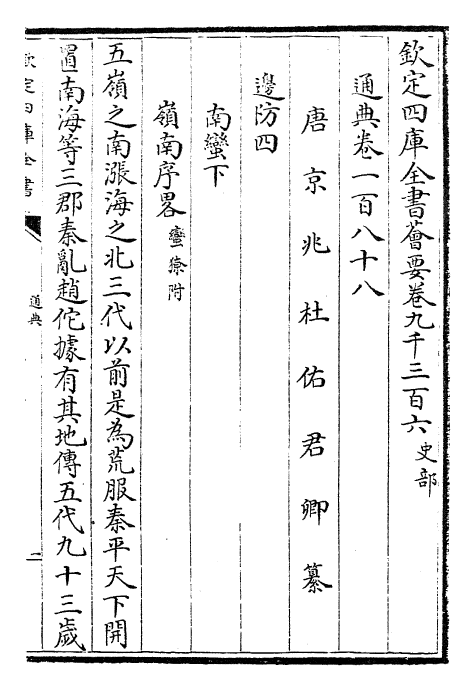 欽定四庫全書薈要卷九千三百六史部
通典卷一百八十八
唐京兆杜佑君卿纂
邊防四
南蠻下
嶺南序畧蠻獠附
五嶺之南漲海之北三代以前是為荒服秦平天下開
置南海等三郡秦亂趙佗據有其地傳五代九十三歲
欽定四庫全書
通典